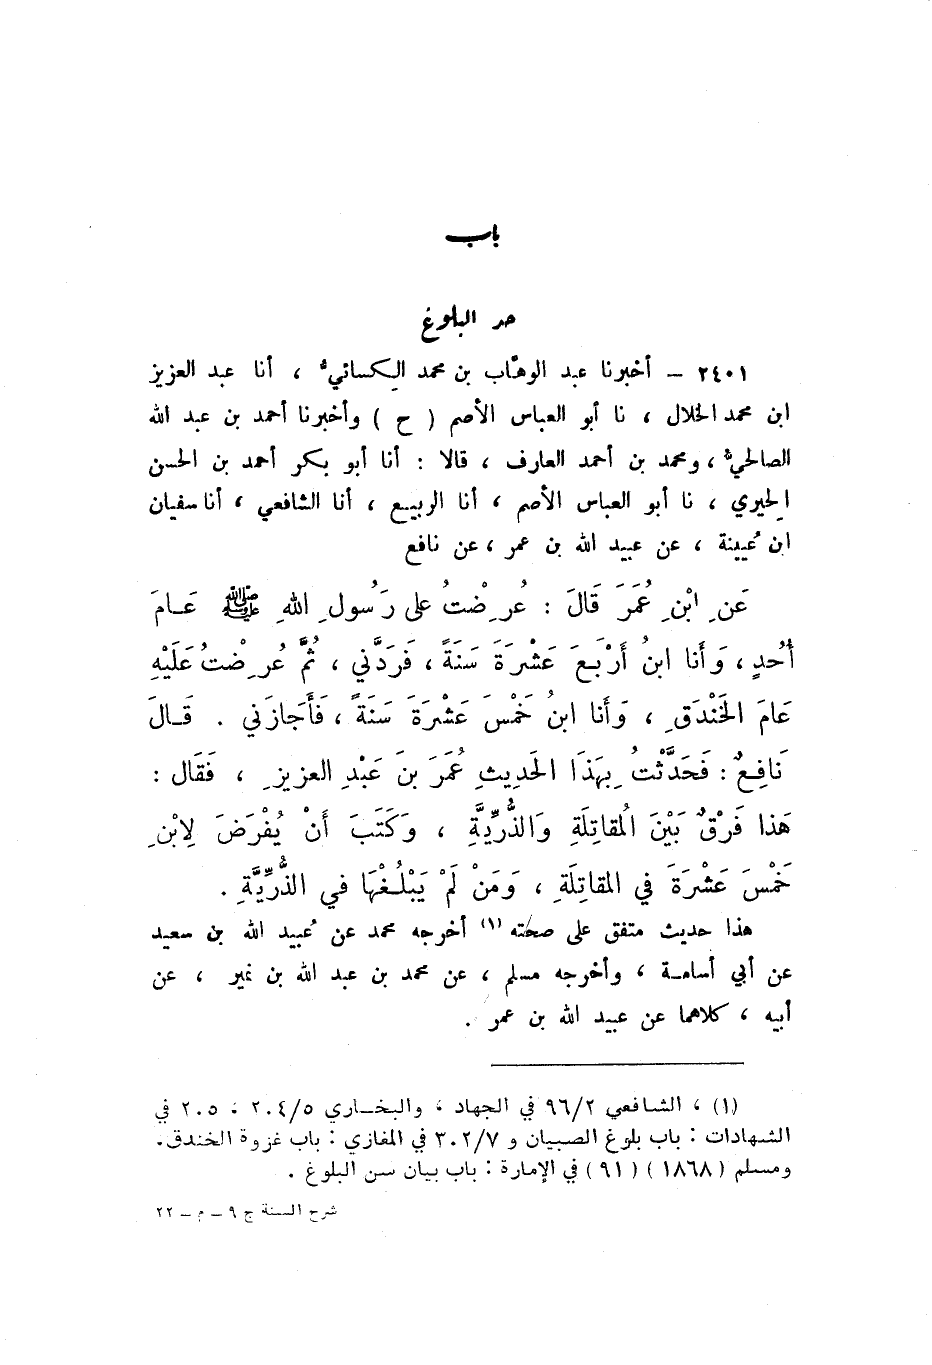 باب
حد البلوغ
٢٤٠١ – أخبرنا عبد الوهّاب بن محمد الكسائيُّ ، أنا عبد العزيز
ابن محمد الخلال ، نا أبو العباس الأصم ( ح ) وأخبرنا أحمد بن عبد الله
الصالحيُّ ، ومحمد بن أحمد العارف ، قالا : أنا أبو بكر أحمد بن الحسن
الحِيري ، نا أبو العباس الأصم ، أنا الربيع ، أنا الشافعي ، أنا سفيان
ابن عُيينة ، عن عبيد الله بن عمر ، عن نافع
عَنِ ابْنِ عُمَرَ قَالَ : عُرِضْتُ على رَسُولِ اللهِ ﷺ عَامَ
أُحُدٍ ، وَأَنا ابنُ أَرْبَعَ عَشْرَةَ سَنَةً ، فَرَدَّني ، ثُمَّ عُرِضْتُ عَلَيْهِ
عَامَ الخَنْدَقِ ، وَأَنا ابنُ خَمْسَ عَشْرَةَ سَنَةً ، فَأَجَازَني . قَالَ
نَافِعٌ : فَحَدَّثْتُ بِهَذَا الحَدِيثِ عُمَرَ بنَ عَبْدِ العزيزِ ، فَقَال :
هَذا فَرْقٌ بَيْنَ المُقاتِلَةِ وَالذُّرِّيَّةِ ، وَكَتَبَ أَنْ يُفْرَضَ لِابْنِ
خَمْسَ عَشْرَةَ في المقاتِلَةِ ، وَمَنْ لَمْ يَبْلُغْهَا في الذُّرِّيَّةِ .
هذا حديث متفق على صحته (١) أخرجه محمد عن عُبيد الله بن سعيد
عن أبي أسامة ، وأخرجه مسلم ، عن محمد بن عبد الله بن نمير ، عن
أبيه ، كلاهما عن عبيد الله بن عمر .
(١) ، الشافعي ٩٦/٢ في الجهاد ، والبخاري ٢٠٤/٥ ، ٢٠٥ في
الشهادات : باب بلوغ الصبيان و ٣٠٢/٧ في المغازي : باب غزوة الخندق.
ومسلم ( ١٨٦٨ ) ( ٩١ ) في الإمارة : باب بيان سن البلوغ .
شرح السنة ج ٩ – م – ٢٢